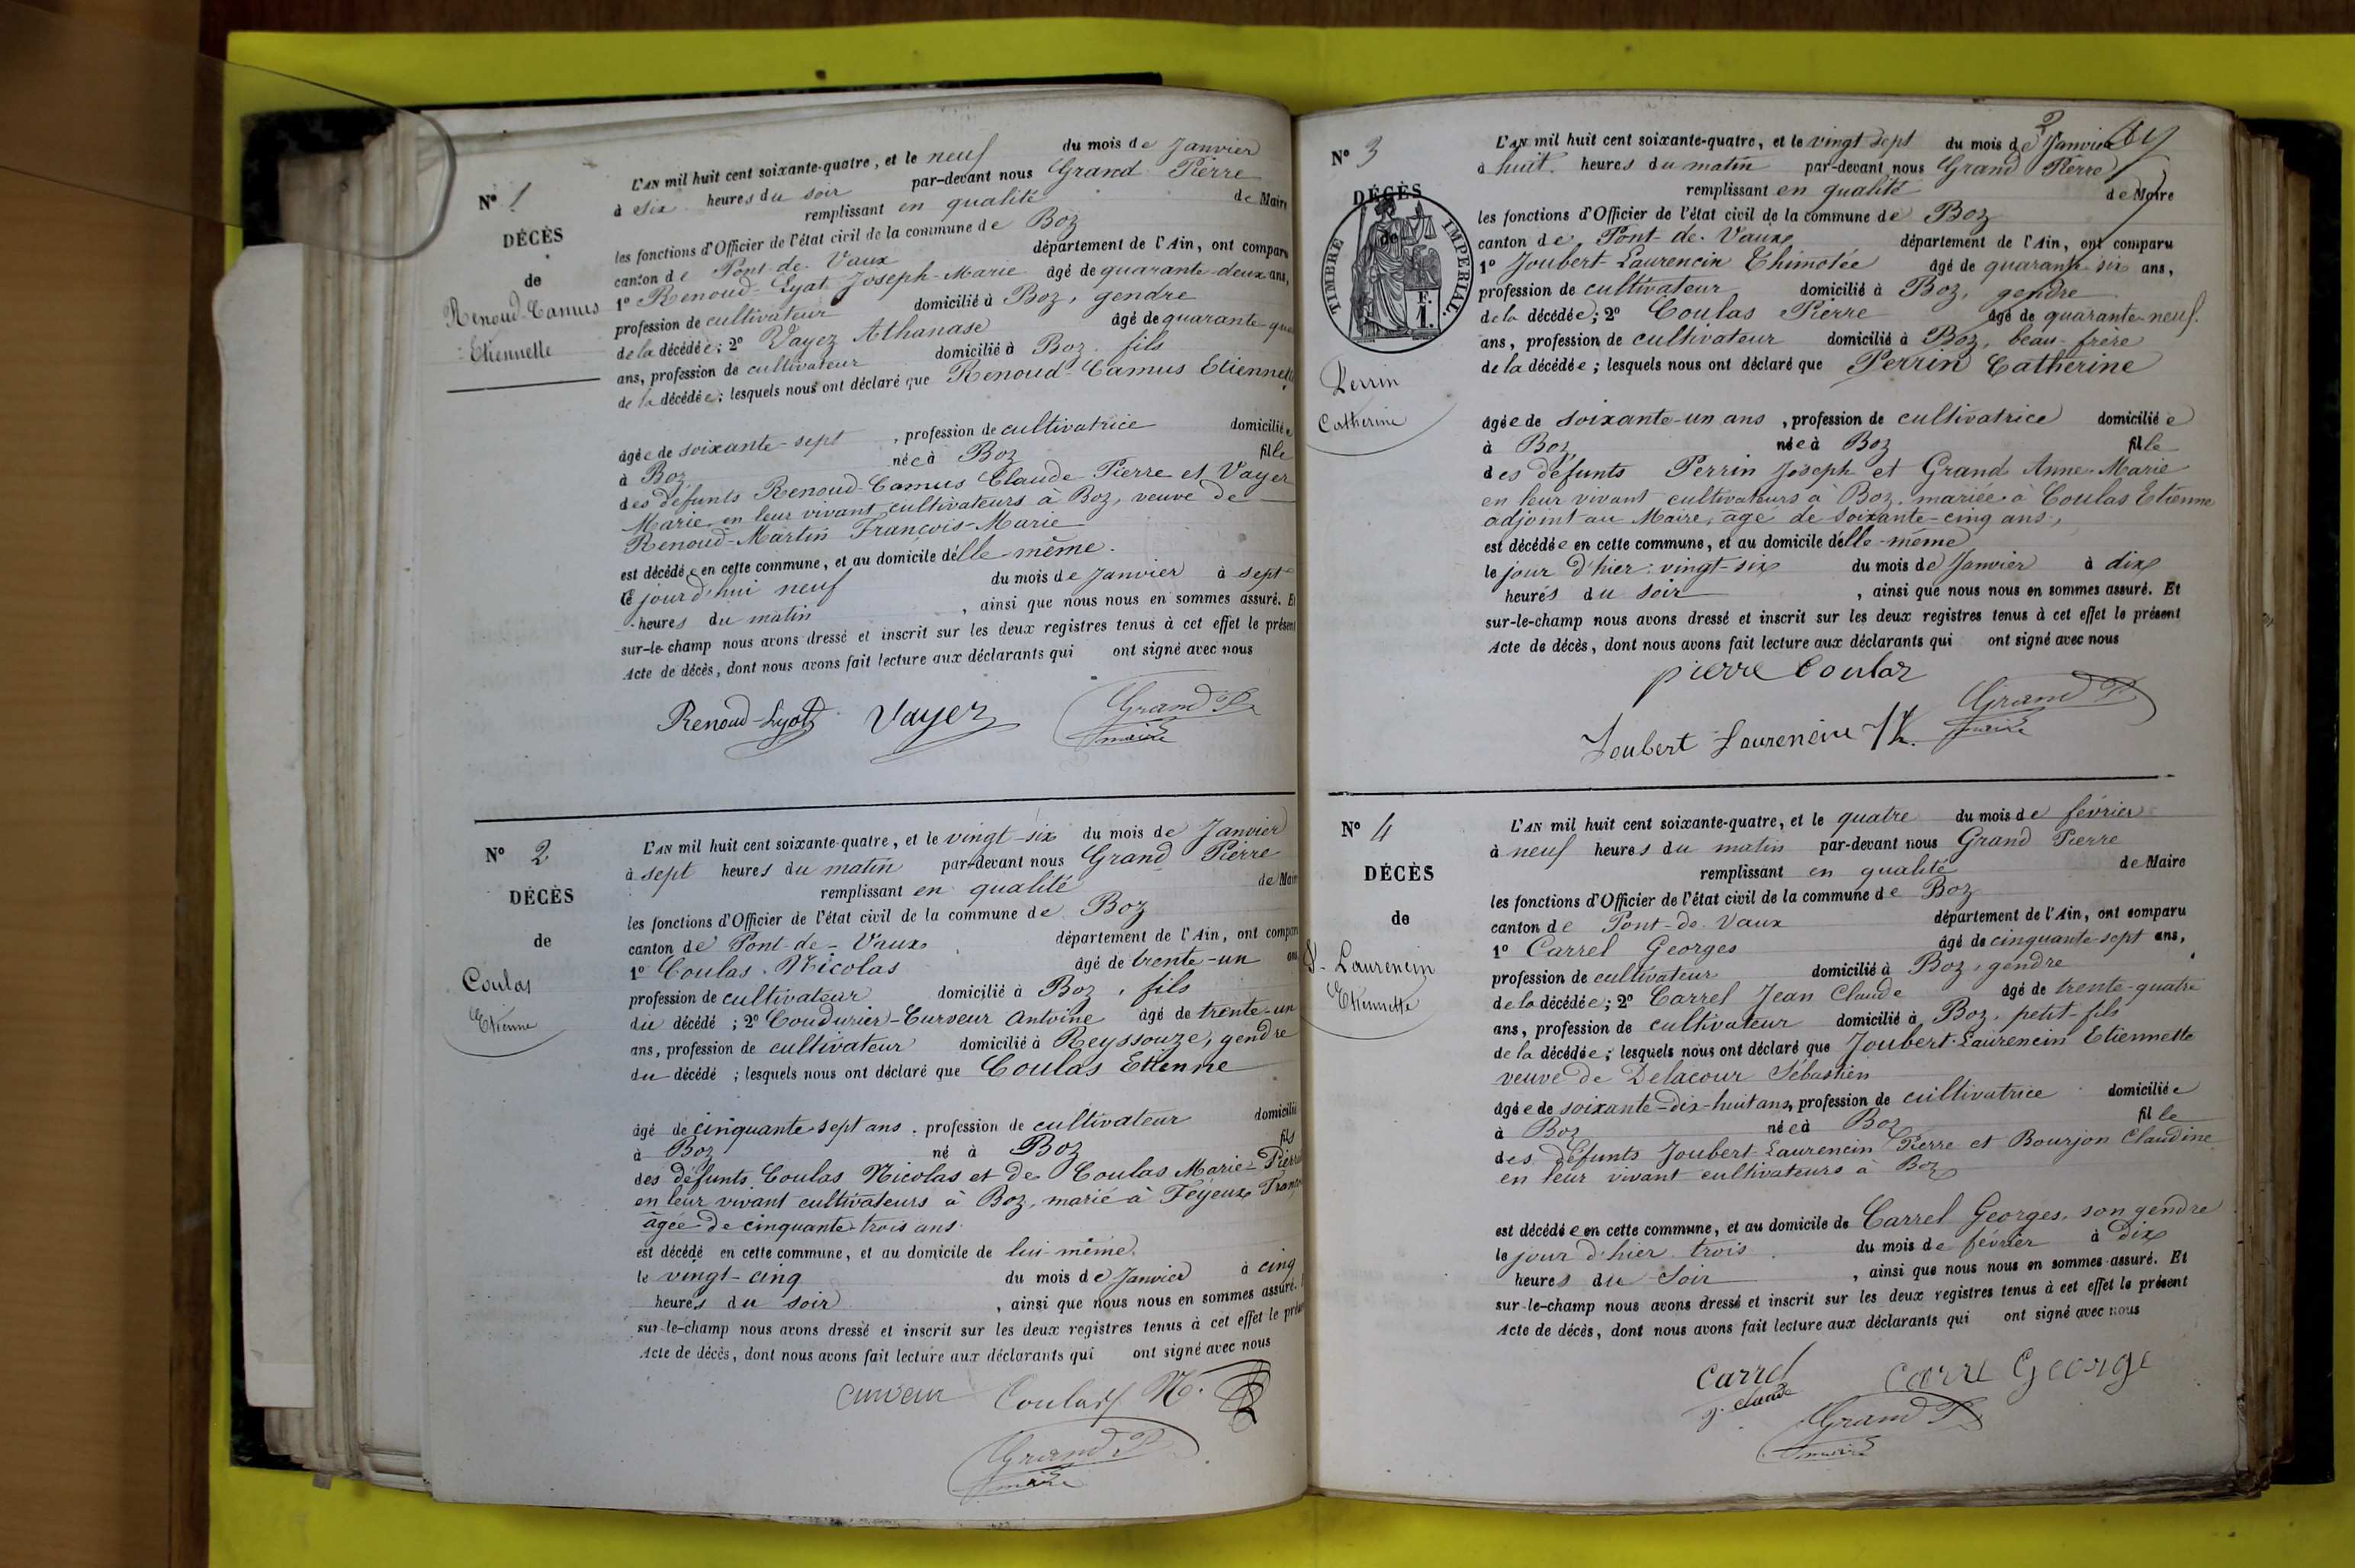 N° 1
DÉCÈS
de
Renoud-Camus
Etiennette
L'AN mil huit cent soixante-quatre, et le neuf du mois de Janvier
à six heures du soir par-devant nous Grand Pierre
remplissant en qualité de Maire
les fonctions d'Officier de l'état civil de la commune de Boz
canton de Pont-de-Vaux département de l'Ain, ont comparu
1° Renoud-Lyat Joseph-Marie âgé de quarante-deux ans,
profession de cultivateur domicilié à Boz, gendre
de la décédée; 2° Vayez Athanase âgé de quarante
ans, profession de cultivateur domicilié à Boz, fils
de la décédée; lesquels nous ont déclaré que Renoud-Camus Etiennette
âgée de soixante-sept, profession de cultivatrice domiciliée
à Boz née à Boz fille
des défunts Renoud-Camus Claude Pierre et Vayer
Marie, en leur vivant cultivateurs à Boz, veuve de
Renoud-Martin François-Marie
est décédée en cette commune, et au domicile d'elle-même.
le jourd'hui neuf du mois de Janvier à sept
heures du matin, ainsi que nous nous en sommes assuré. Et
sur-le-champ nous avons dressé et inscrit sur les deux registres tenus à cet effet le présent
Acte de décès, dont nous avons fait lecture aux déclarants qui ont signé avec nous
Renoud-Lyat Vayez Grand P.
maire
N° 2
DÉCÈS
de
Coulas
Etienne
L'AN mil huit cent soixante-quatre, et le vingt-six du mois de Janvier
à sept heures du matin par-devant nous Grand Pierre
remplissant en qualité de Maire
les fonctions d'Officier de l'état civil de la commune de Boz
canton de Pont-de-Vaux département de l'Ain, ont comparu
1° Coulas Nicolas âgé de trente-un ans
profession de cultivateur domicilié à Boz, fils
du décédé; 2° Coudurier-Curveur Antoine âgé de trente-un
ans, profession de cultivateur domicilié à Reyssouze, gendre
du décédé; lesquels nous ont déclaré que Coulas Etienne
âgé de cinquante-sept ans. profession de cultivateur domicilié
à Boz né à Boz fils
des défunts Coulas Nicolas et de Coulas Marie-Pierre
en leur vivant cultivateurs à Boz, marié à Féyeux
âgée de cinquante-trois ans.
est décédé en cette commune, et au domicile de lui-même.
le vingt-cinq du mois de Janvier à cinq
heures du soir, ainsi que nous nous en sommes assuré.
sur-le-champ nous avons dressé et inscrit sur les deux registres tenus à cet effet le présent
Acte de décès, dont nous avons fait lecture aux déclarants qui ont signé avec nous
curveur Coulas N.
Grand P
maire
2
N° 3
DÉCÈS
de
TIMBRE IMPÉRIAL.
F.
1.
Perrin
Catherine
L'AN mil huit cent soixante-quatre, et le vingt-sept du mois de Janvier
à huit heures du matin par-devant nous Grand Pierre
remplissant en qualité de Maire
les fonctions d'Officier de l'état civil de la commune de Boz
canton de Pont-de-Vaux département de l'Ain, ont comparu
1° Joubert-Laurencin Thimotée âgé de quarante-six ans,
profession de cultivateur domicilié à Boz, gendre
de la décédée; 2° Coulas Pierre âgé de quarante-neuf
ans, profession de cultivateur domicilié à Boz, beau-frère
de la décédée; lesquels nous ont déclaré que Perrin Catherine
âgée de soixante-un ans, profession de cultivatrice domiciliée
à Boz née à Boz fille
des défunts Perrin Joseph et Grand Anne-Marie
en leur vivant cultivateurs à Boz, mariée à Coulas Etienne
adjoint au Maire, âgé de soixante-cinq ans,
est décédée en cette commune, et au domicile d'elle-même
le jour d'hier vingt-six du mois de Janvier à dix
heures du soir, ainsi que nous nous en sommes assuré. Et
sur-le-champ nous avons dressé et inscrit sur les deux registres tenus à cet effet le présent
Acte de décès, dont nous avons fait lecture aux déclarants qui ont signé avec nous
pierre Coulas
Grand P
maire
Joubert Laurencin
N° 4
DÉCÈS
de
J- Laurencin
Etiennette
L'AN mil huit cent soixante-quatre, et le quatre du mois de février
à neuf heures du matin par-devant nous Grand Pierre
remplissant en qualité de Maire
les fonctions d'Officier de l'état civil de la commune de Boz
canton de Pont-de-Vaux département de l'Ain, ont comparu
1° Carrel Georges âgé de cinquante-sept ans,
profession de cultivateur domicilié à Boz, gendre
de la décédée; 2° Carrel Jean Claude âgé de trente-quatre
ans, profession de cultivateur domicilié à Boz, petit-fils
de la décédée; lesquels nous ont déclaré que Joubert-Laurencin Etiennette
veuve de Delacour Sébastien
âgée de soixante-dix-huit ans, profession de cultivatrice domiciliée
à Boz née à Boz fille
des défunts Joubert-Laurencin Pierre et Bourjon Claudine
en leur vivant cultivateurs à Boz
est décédée en cette commune, et au domicile de Carrel Georges, son gendre
le jour d'hier trois du mois de février à dix
heures du soir, ainsi que nous nous en sommes assuré. Et
sur-le-champ nous avons dressé et inscrit sur les deux registres tenus à cet effet le présent
Acte de décès, dont nous avons fait lecture aux déclarants qui ont signé avec nous
Carrel carre George
j. claude
Grand P
maire